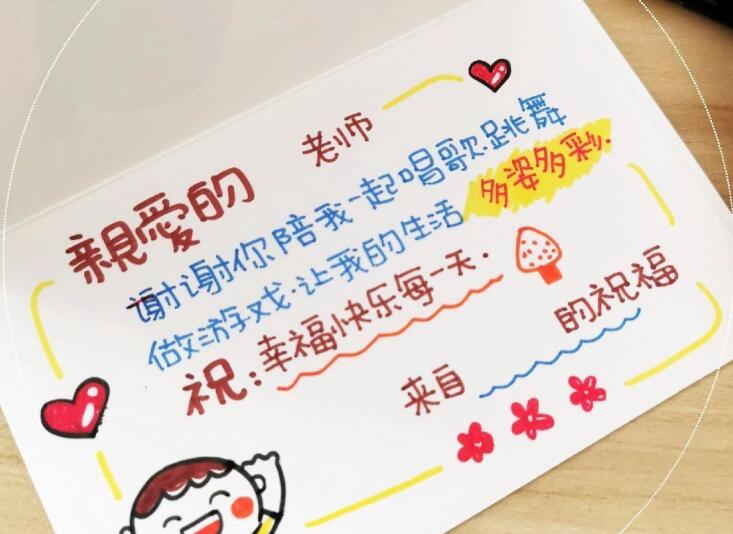 親愛的 老师
谢谢你陪我一起唱歌.跳舞
做游戏.让我的生活 多姿多彩.
祝:幸福快乐每一天.
来自 的祝福